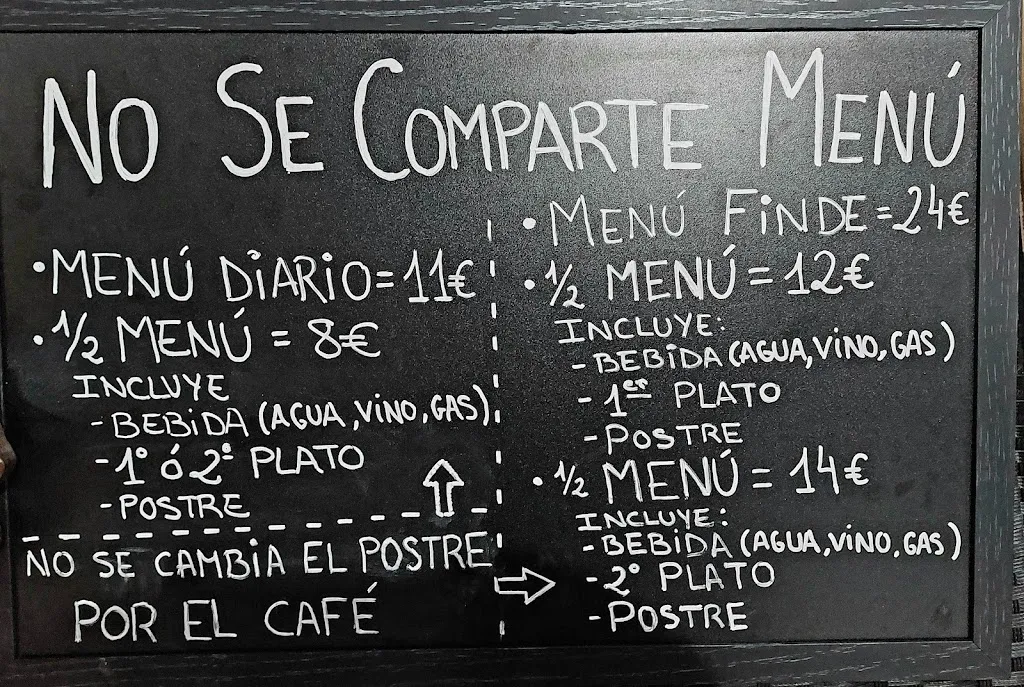 NO SE COMPARTE MENÚ
•MENÚ DIARIO=11€
•1/2 MENÚ = 8€
INCLUYE
-BEBIDA (AGUA,VINO,GAS)
-1º ó 2º PLATO
-POSTRE
NO SE CAMBIA EL POSTRE
POR EL CAFÉ
•MENÚ FINDE=24€
•1/2 MENÚ = 12€
INCLUYE:
-BEBIDA (AGUA,VINO,GAS)
-1er PLATO
-POSTRE
•1/2 MENÚ = 14€
INCLUYE:
-BEBIDA (AGUA,VINO,GAS)
-2º PLATO
-POSTRE